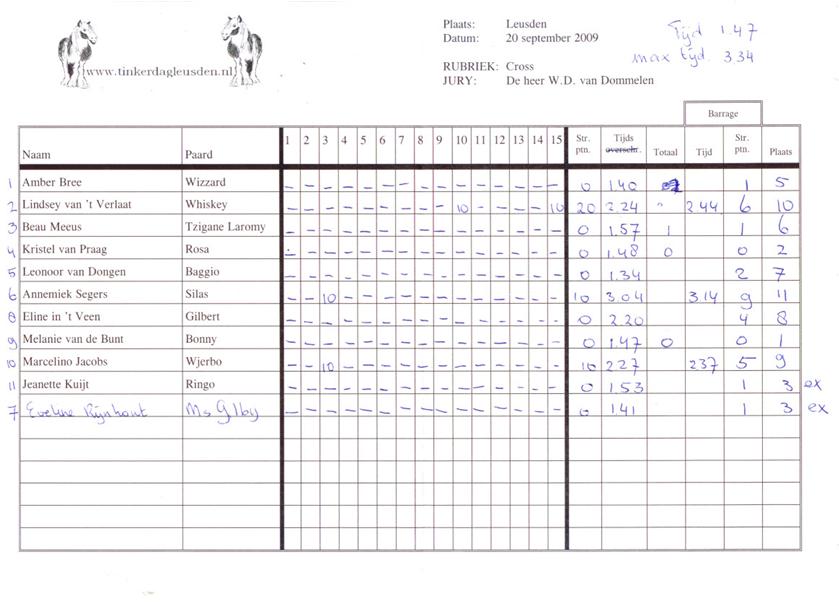 www.tinkerdagleusden.nl
Plaats: Leusden
Datum: 20 september 2009
RUBRIEK: Cross
JURY: De heer W.D. van Dommelen
Tijd 1.47
max tijd. 3.34
Barrage
Naam Paard 1 2 3 4 5 6 7 8 9 10 11 12 13 14 15 Str. ptn. Tijds overschr. Totaal Tijd Str. ptn. Plaats
1 Amber Bree Wizzard – – – – – – – – – – – – – – – 0 1.40 1 5
2 Lindsey van 't Verlaat Whiskey – – – – – – – – – 10 – – – – 10 20 2.24 " 2.44 6 10
3 Beau Meeus Tzigane Laromy – – – – – – – – – – – – – – – 0 1.57 1 1 6
4 Kristel van Praag Rosa – – – – – – – – – – – – – – – 0 1.48 0 0 2
5 Leonoor van Dongen Baggio – – – – – – – – – – – – – – – 0 1.34 2 7
6 Annemiek Segers Silas – – 10 – – – – – – – – – – – – 10 3.04 3.14 9 11
8 Eline in 't Veen Gilbert – – – – – – – – – – – – – – – 0 2.20 4 8
9 Melanie van de Bunt Bonny – – – – – – – – – – – – – – – 0 1.47 0 0 1
10 Marcelino Jacobs Wjerbo – – 10 – – – – – – – – – – – – 10 2.27 2.37 5 9
11 Jeanette Kuijt Ringo – – – – – – – – – – – – – – – 0 1.53 1 3 ex
7 Eveline Rijnhout Ms Gilby – – – – – – – – – – – – – – – 0 1.41 1 3 ex